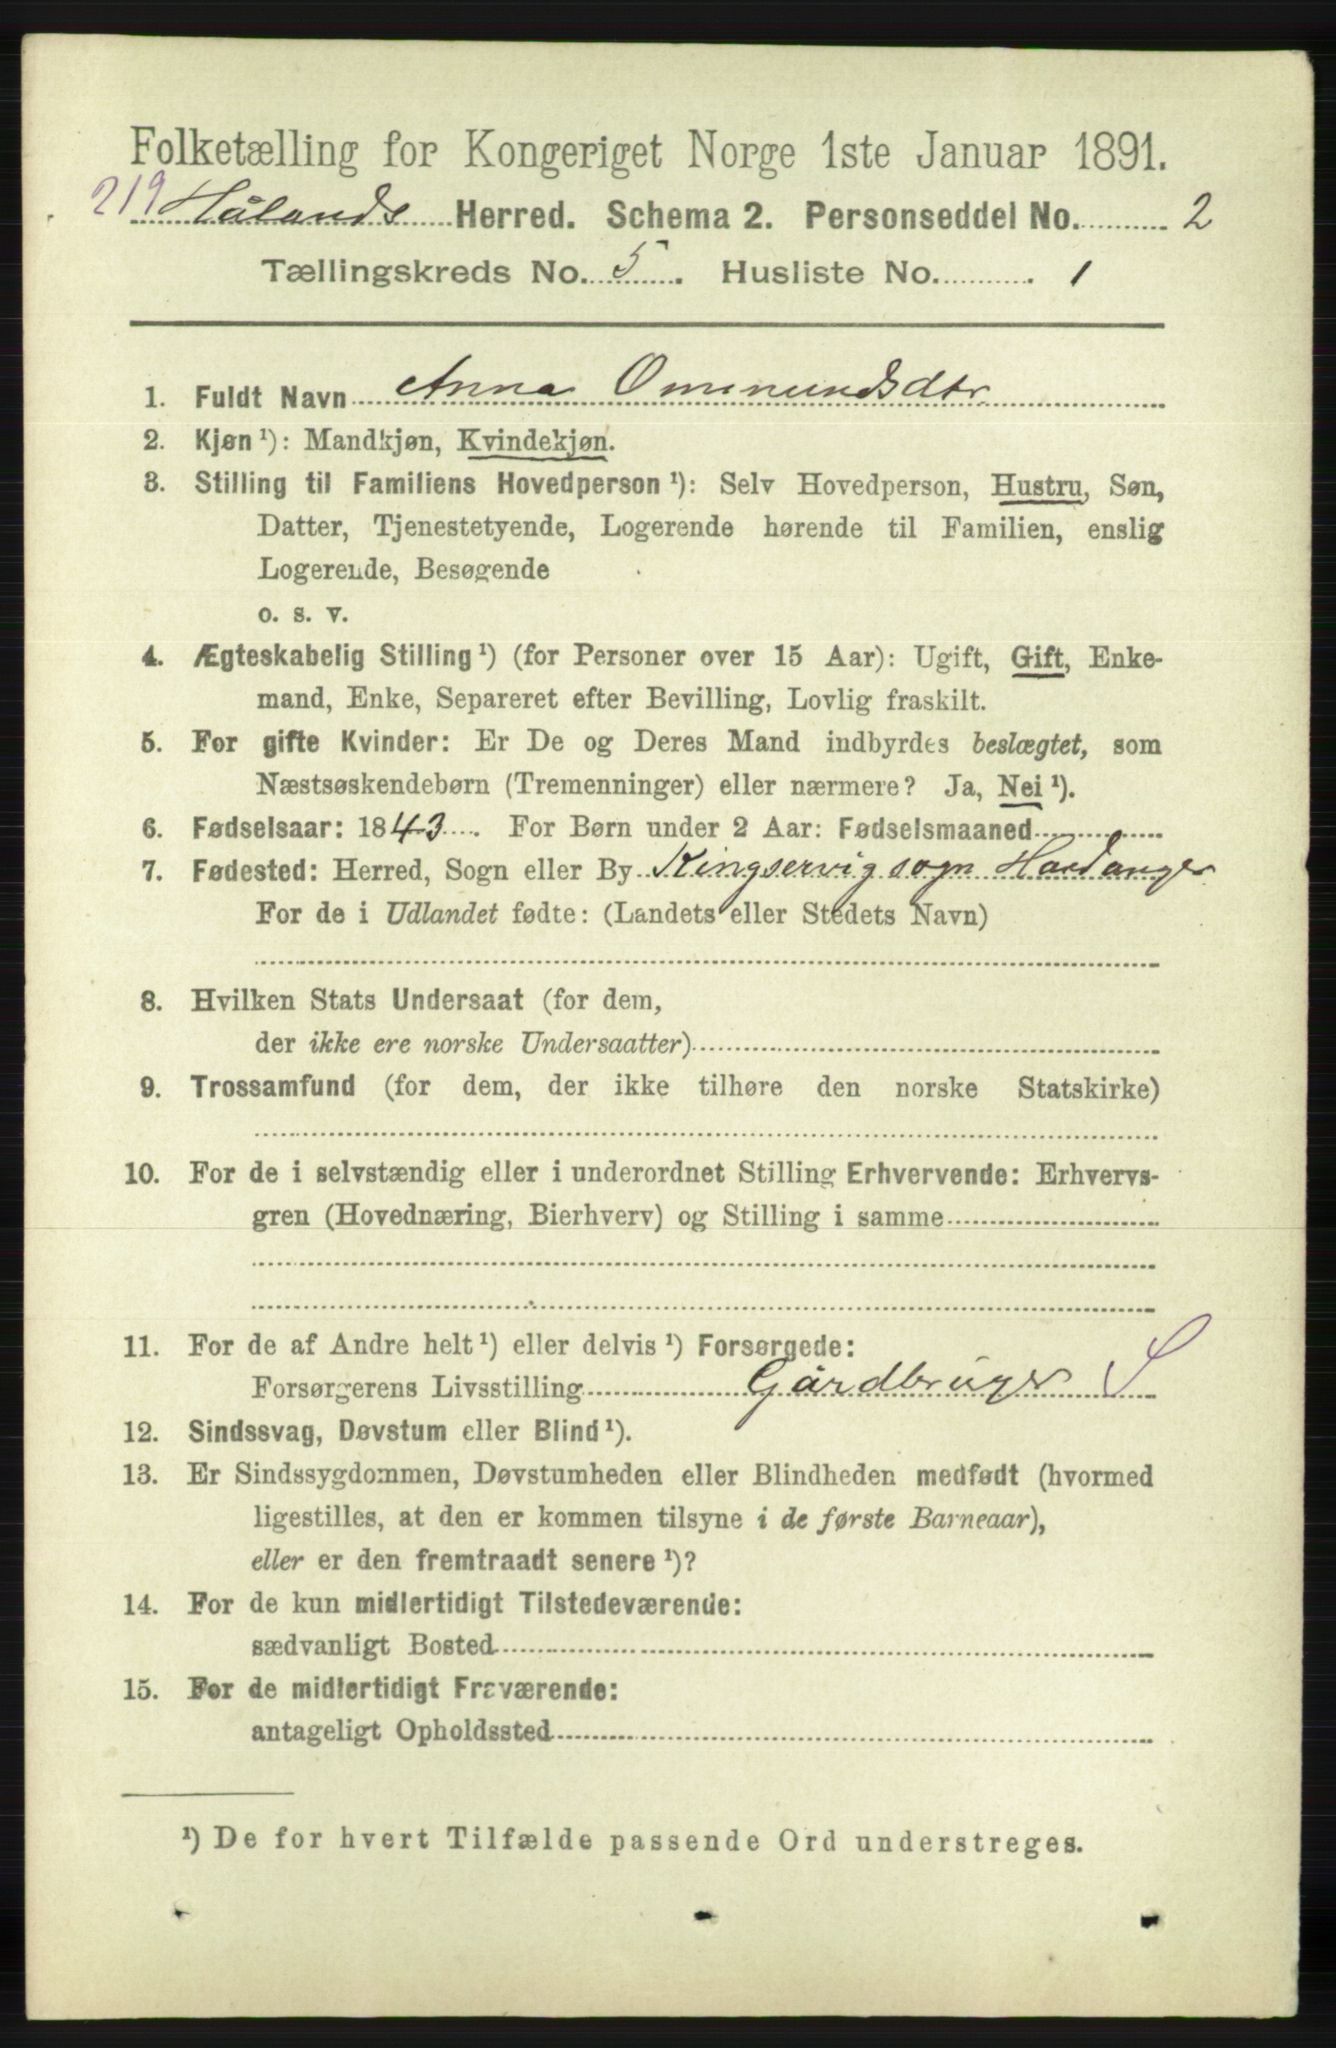 Folketælling for Kongeriget Norge 1ste Januar 1891.
219 Hålands Herred. Schema 2. Personseddel No. 2
Tællingskreds No. 5. Husliste No. 1
1. Fuldt Navn Anna Ommundsdtr.
2. Kjøn ¹): Mandkjøn, Kvindekjøn.
3. Stilling til Familiens Hovedperson ¹): Selv Hovedperson, Hustru, Søn,
Datter, Tjenestetyende, Logerende hørende til Familien, enslig
Logerende, Besøgende
o. s. v.
4. Ægteskabelig Stilling ¹) (for Personer over 15 Aar): Ugift, Gift, Enke-
mand, Enke, Separeret efter Bevilling, Lovlig fraskilt.
5. For gifte Kvinder: Er De og Deres Mand indbyrdes beslægtet, som
Næstsøskendebørn (Tremenninger) eller nærmere? Ja, Nei ¹).
6. Fødselsaar: 1843. For Børn under 2 Aar: Fødselsmaaned
7. Fødested: Herred, Sogn eller By Kingservig sogn Hardanger
For de i Udlandet fødte: (Landets eller Stedets Navn)
8. Hvilken Stats Undersaat (for dem,
der ikke ere norske Undersaatter)
9. Trossamfund (for dem, der ikke tilhøre den norske Statskirke)
10. For de i selvstændig eller i underordnet Stilling Erhvervende: Erhvervs-
gren (Hovednæring, Bierhverv) og Stilling i samme
11. For de af Andre helt ¹) eller delvis ¹) Forsørgede:
Forsørgerens Livsstilling Gårdbruger S
12. Sindssvag, Døvstum eller Blind ¹).
13. Er Sindssygdommen, Døvstumheden eller Blindheden medfødt (hvormed
ligestilles, at den er kommen tilsyne i de første Barneaar),
eller er den fremtraadt senere ¹)?
14. For de kun midlertidigt Tilstedeværende:
sædvanligt Bosted
15. For de midlertidigt Fraværende:
antageligt Opholdssted
¹) De for hvert Tilfælde passende Ord understreges.